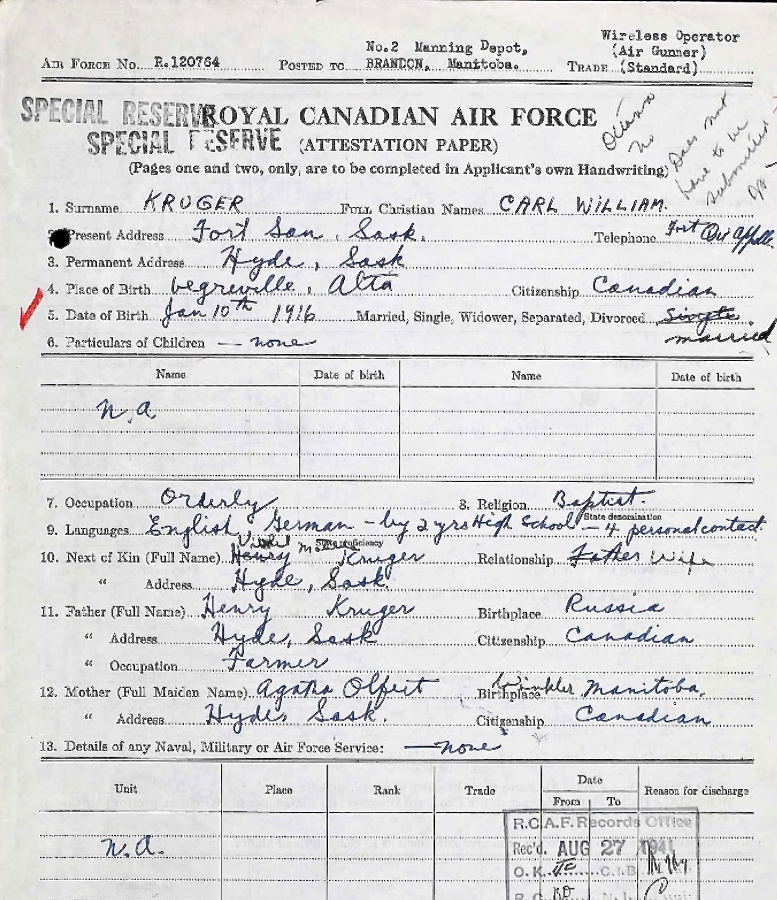 Wireless Operator
No.2 Manning Depot, (Air Gunner)
AIR FORCE NO. R.120764 POSTED TO BRANDON, Manitoba. TRADE (Standard)
SPECIAL RESERVE ROYAL CANADIAN AIR FORCE
SPECIAL RESERVE (ATTESTATION PAPER)
Ottawa
No
Does not
have to be
submitted
(Pages one and two, only, are to be completed in Applicant's own Handwriting)
1. Surname KRUGER FULL Christian Names CARL WILLIAM.
2. Present Address Fort San, Sask. Telephone Fort Qu'Appelle.
3. Permanent Address Hyde, Sask
4. Place of Birth Vegreville, Alta Citizenship Canadian
5. Date of Birth Jan 10th 1916 Married, Single, Widower, Separated, Divorced Single
married
6. Particulars of Children — none
Name Date of birth Name Date of birth
N.A
7. Occupation Orderly 8. Religion Baptist.
State denomination
9. Languages English, German - by 2 yrs High School - 4 personal contact.
State proficiency
10. Next of Kin (Full Name) Henry Kruger Relationship Father Wife
" Address Hyde, Sask.
11. Father (Full Name) Henry Kruger Birthplace Russia
" Address Hyde, Sask Citizenship Canadian
" Occupation Farmer
12. Mother (Full Maiden Name) Agatha Olfert Birthplace Winkler Manitoba.
" Address Hyde, Sask. Citizenship Canadian
13. Details of any Naval, Military or Air Force Service: — none
Unit Place Rank Trade Date Reason for discharge
From To
N.A.
R.C.A.F. Records Office
Rec'd. AUG 27 1941
O.K. C.I.B